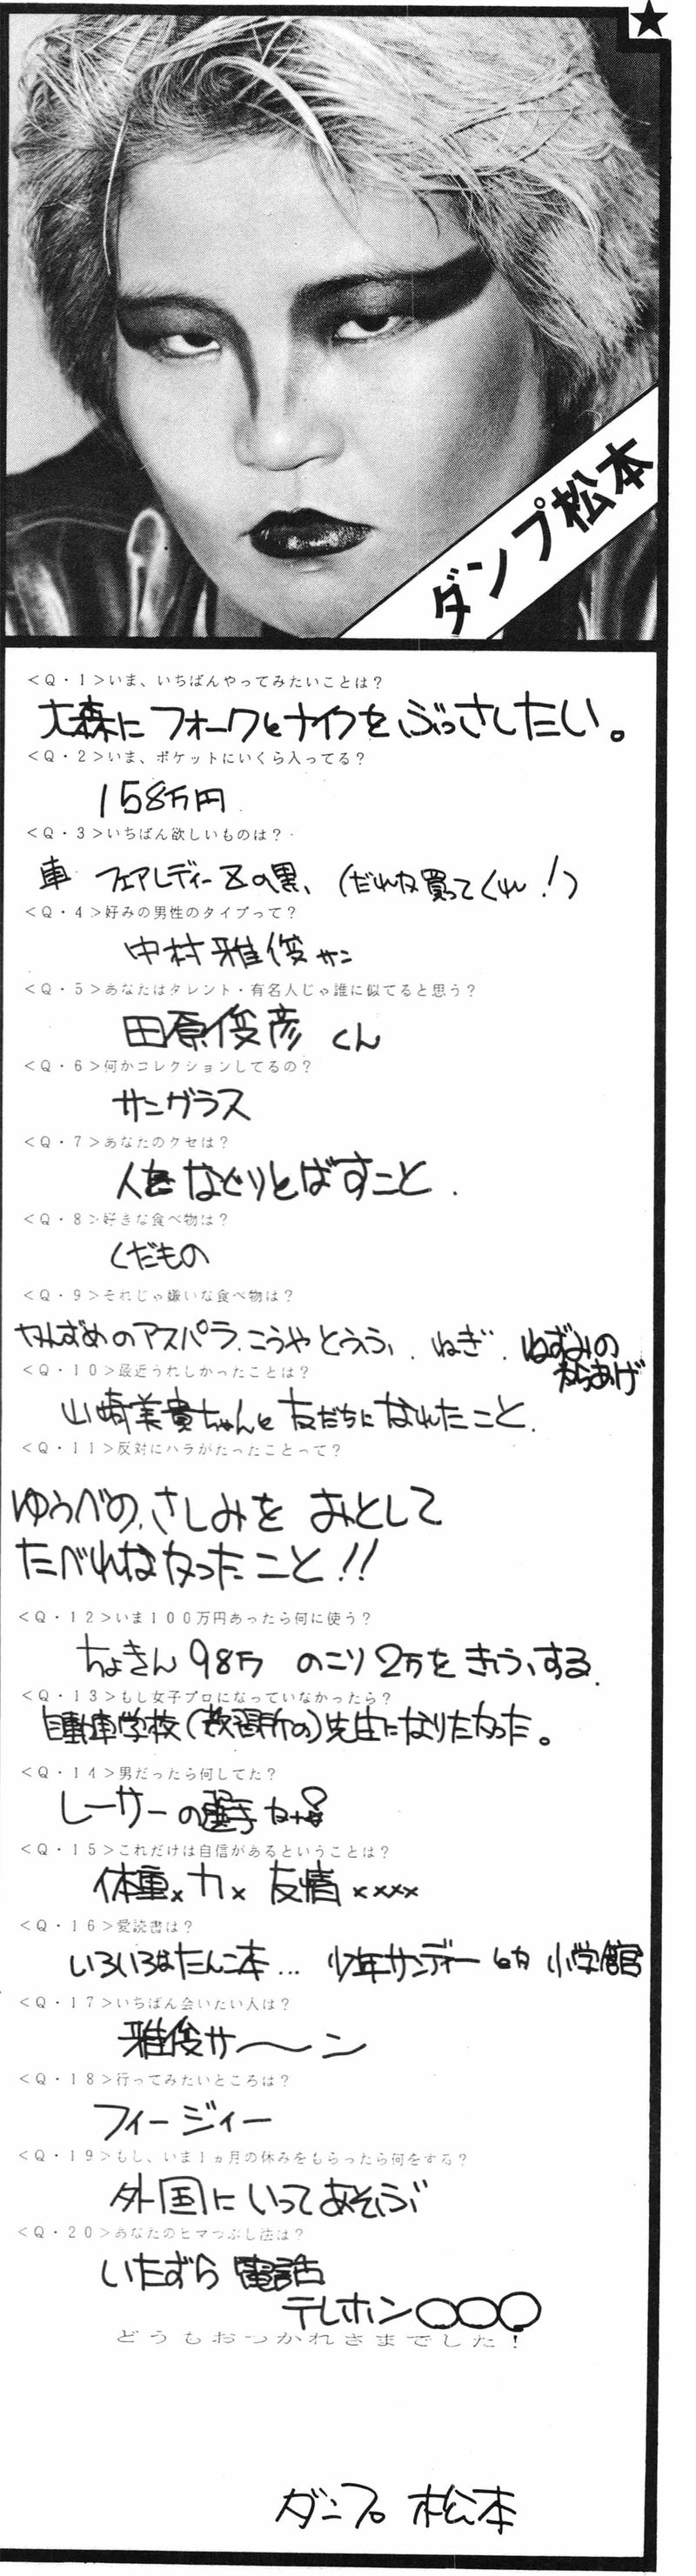 ダンプ松本
<Q・1>いま、いちばんやってみたいことは?
大森にフォークとナイフをぶっさしたい。
<Q・2>いま、ポケットにいくら入ってる?
158万円
<Q・3>いちばん欲しいものは?
車 フェアレディーZの黒、(だれか買ってくれ!)
<Q・4>好みの男性のタイプって?
中村雅俊サン
<Q・5>あなたはタレント・有名人じゃ誰に似てると思う?
田原俊彦くん
<Q・6>何かコレクションしてるの?
サングラス
<Q・7>あなたのクセは?
人をなぐりとばすこと.
<Q・8>好きな食べ物は?
くだもの
<Q・9>それじゃ嫌いな食べ物は?
かんずめのアスパラ、こうやとうふ、ねぎ、ねずみの
からあげ
<Q・10>最近うれしかったことは?
山崎美貴ちゃんと友だちになれたこと.
<Q・11>反対にハラがたったことって?
ゆうべの、さしみを おとして
たべれなかったこと!!
<Q・12>いま100万円あったら何に使う?
ちょきん98万 のこり2万をきふする.
<Q・13>もし女子プロになっていなかったら?
自動車学校(教習所の)先生になりたかった。
<Q・14>男だったら何してた?
レーサーの選手
<Q・15>これだけは自信があるということは?
体重x力x友情xxxx
<Q・16>愛読書は?
いろいろなたんこ本… 少年サンデー 小学館
<Q・17>いちばん会いたい人は?
雅俊サ〜ン
<Q・18>行ってみたいところは?
フィージィー
<Q・19>もし、いま1ヵ月の休みをもらったら何をする?
外国にいってあそぶ
<Q・20>あなたのヒマつぶし法は?
いたずら電話
テレホン○○○
どうもおつかれさまでした!
ダンプ松本